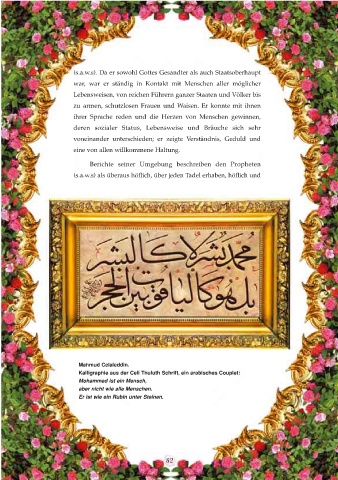 (s.a.w.s). Da er sowohl Gottes Gesandter als auch Staatsoberhaupt
war, war er ständig in Kontakt mit Menschen aller möglicher
Lebensweisen, von reichen Führern ganzer Staaten und Völker bis
zu armen, schutzlosen Frauen und Waisen. Er konnte mit ihnen
ihrer Sprache reden und die Herzen von Menschen gewinnen,
deren sozialer Status, Lebensweise und Bräuche sich sehr
voneinander unterschieden; er zeigte Verständnis, Geduld und
eine von allen willkommene Haltung.
Berichte seiner Umgebung beschreiben den Propheten
(s.a.w.s) als überaus höflich, über jeden Tadel erhaben, höflich und
محمد بشر لا كالبشر
بل هو كالياقوت بين الحجر
Mahmud Celaleddin.
Kalligraphie aus der Celi Thuluth Schrift, ein arabisches Couplet:
Mohammed ist ein Mensch,
aber nicht wie alle Menschen.
Er ist wie ein Rubin unter Steinen.
82